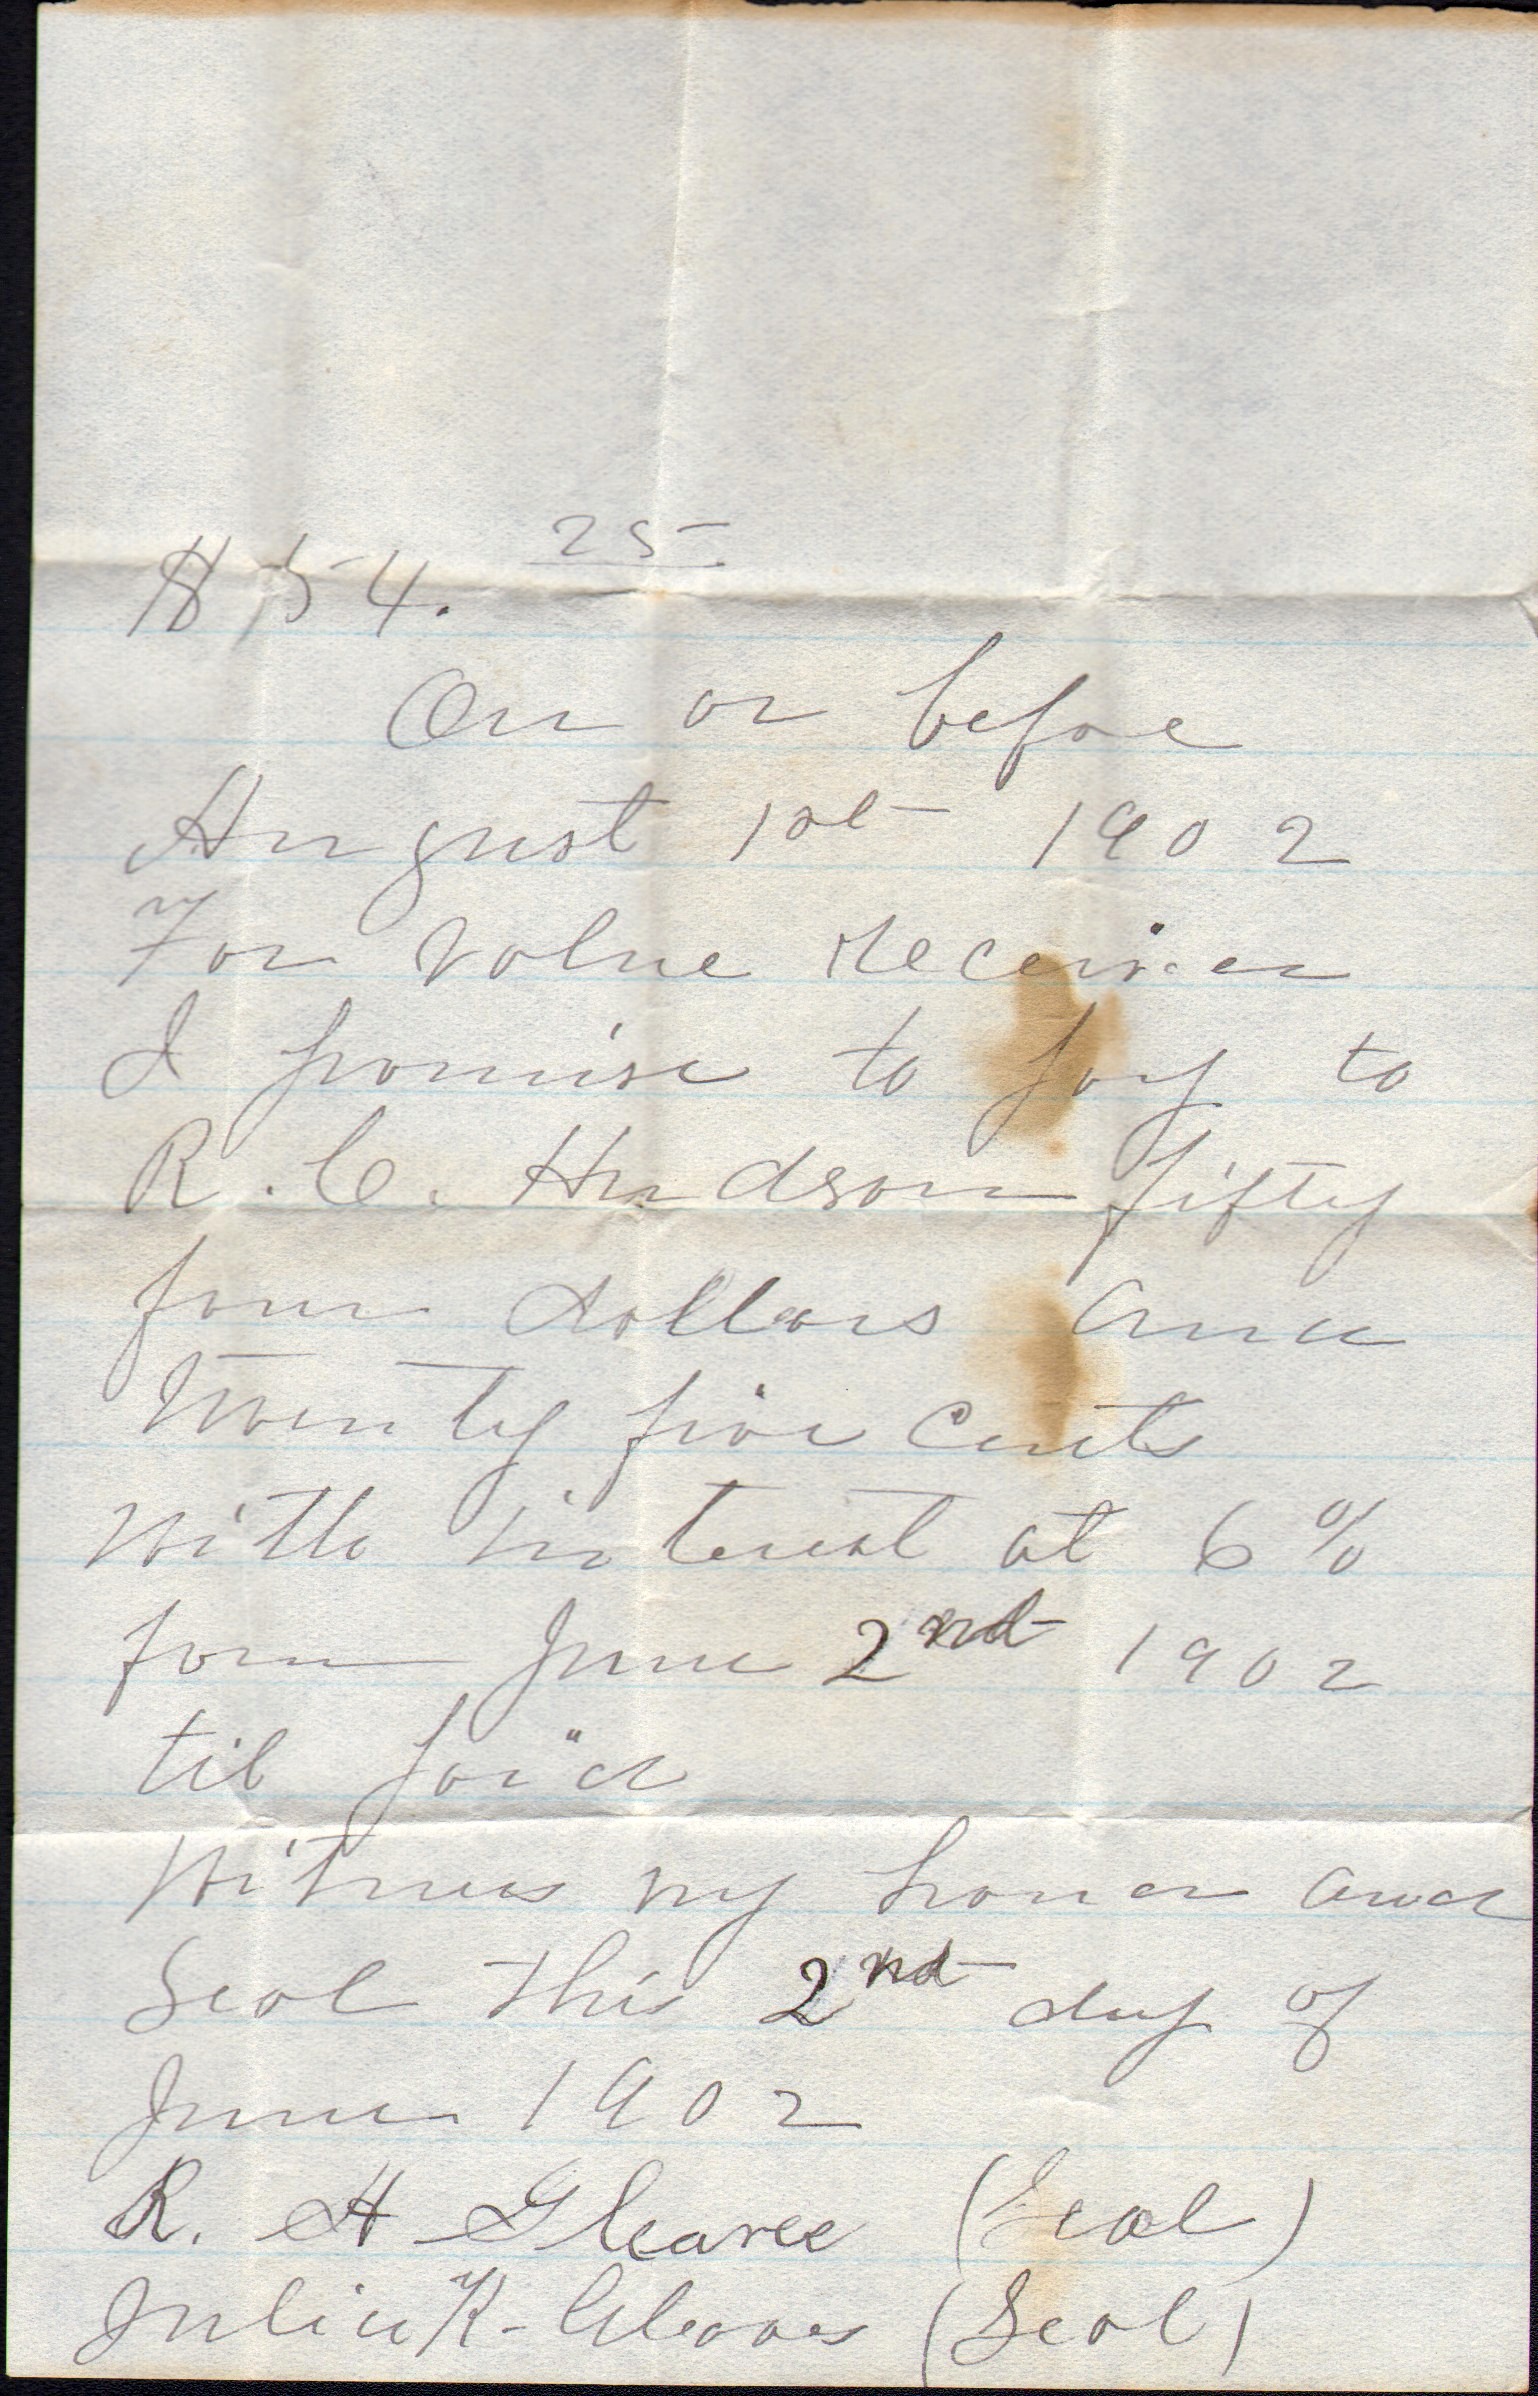 $54. 25
On or before
August 1st 1902
For value received
I promise to pay to
R. C. Hudson fifty
four dollars and
twenty five cents
with interest at 6%
from June 2nd 1902
til paid
Witness my hand and
Seal this 2nd day of
June 1902
R. H Gleaves (Seal)
Julia K- Gleaves (Seal)